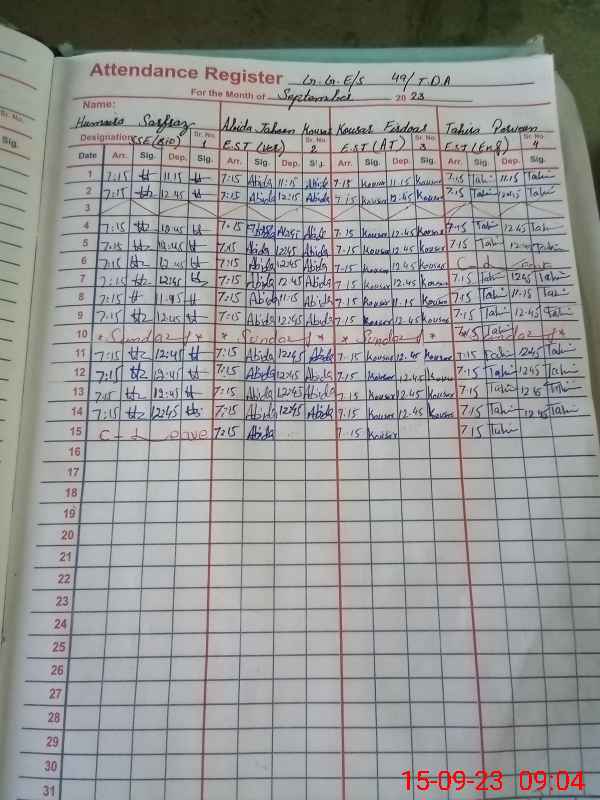 Attendance Register G.G.E/S 49/T.D.A
For the Month of September 2023
Name:
Humaira Sarfraz Abida Kousar Kousar Firdos Tahira Parveen
Designation SSE(BIO) Sr. No. 1 E.S.T Sr. No. 2 E.S.T (AT) Sr. No. 3 E.S.T (Eng) Sr. No. 4
Date Arr. Sig. Dep. Sig. Arr. Sig. Dep. Sig. Arr. Sig. Dep. Sig. Arr. Sig. Dep. Sig.
1 7:15 11:15 7:15 Abida 11:15 Abida 7.15 Kousar 11.15 Kousar 7.15 Tahi 11.15 Tahi
2 7:15 12:45 7:15 Abida 12:15 Abida 7.15 Kousar 12.45 Kousar 7.15 Tahi Tahi
3
4 7:15 12:45 7:15 Abida 12:45 Abida 7.15 Kousar 12.45 Kousar 7.15 Tahi 12.45 Tahi
5 7:15 12:45 7:15 Abida 12:45 Abida 7.15 Kousar 12.45 Kousar 7.15 Tahi Tahi
6 7:15 12:45 7:15 Abida 12:45 Abida 7.15 Kousar 12.45 Kousar
7 7:15 12:45 7:15 Abida 12:45 Abida 7.15 Kousar 12.45 Kousar 7.15 Tahi 12.45 Tahi
8 7:15 11:45 7:15 Abida 11:15 Abida 7.15 Kousar 11.15 Kousar 7.15 Tahi 11.15 Tahi
9 7:15 12:45 7:15 Abida 12:45 Abida 7.15 Kousar 12.45 Kousar 7.15 Tahi 12.45 Tahi
10 * Sunday * * Sunday * * Sunday * 7.15 Tahi
11 7:15 12:45 7:15 Abida 12:45 Abida 7.15 Kousar 12.45 Kousar 7.15 Tahi 12.45 Tahi
12 7:15 12:45 7:15 Abida 12:45 Abida 7.15 Kousar 12.45 Kousar 7.15 Tahi 12.45 Tahi
13 7:15 12:45 7:15 Abida 12:45 Abida 7.15 Kousar 12.45 Kousar 7.15 Tahi 12.45 Tahi
14 7:15 12:45 7:15 Abida 12:45 Abida 7.15 Kousar 12.45 Kousar 7.15 Tahi 12.45 Tahi
15 C-Leave 7:15 Abida 7.15 Kousar 7.15 Tahi
16
17
18
19
20
21
22
23
24
25
26
27
28
29
30
31
15-09-23 09:04